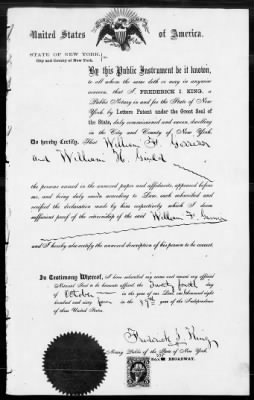 United States of America.
STATE OF NEW YORK,
City and County of New York.
By this Public Instrument be it known,
to all whom the same doth or may in anywise
concern, that I, FREDERICK I. KING, a
Public Notary in and for the State of New
York, by Letters Patent under the Great Seal of
the State, duly commissioned and sworn, dwelling
in the City and County of New York.
Do hereby Certify, That William H.
and William H.
the persons named in the annexed paper and affidavits, appeared before
me, and being duly sworn according to Law, each subscribed and
verified the declaration made by him respectively which I deem
sufficient proof of the citizenship of the said William H.
and I hereby also certify the annexed description of his person to be correct.
In Testimony Whereof, I have subscribed my name and caused my official
Notarial Seal to be hereunto affixed, the Twenty fourth day
of October in the year of our Lord, one thousand eight
hundred and sixty four in the 89th year of the Independence
of these United States.
Frederick I. King
Notary Public of the State of New York.
BROADWAY.